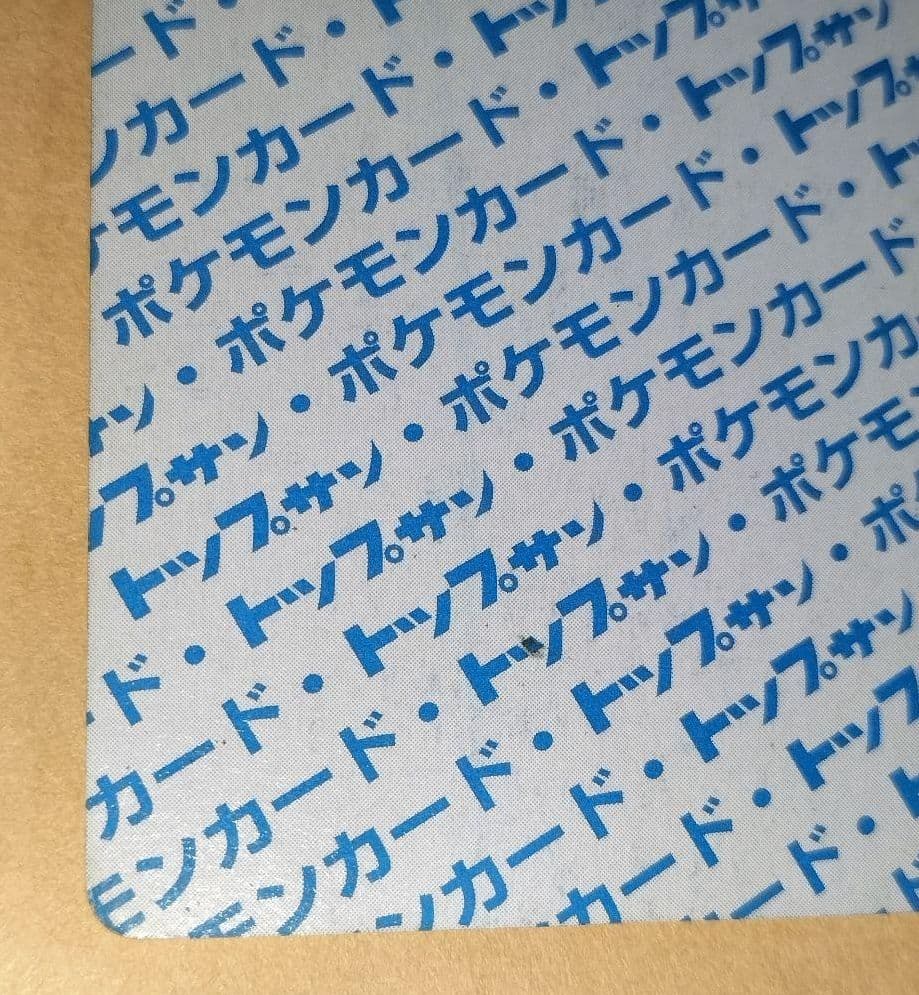 ード・ト
ンカード・トップ
ケモンカード・トップサン
ポケモンカード・トップサン
サン・ポケモンカード・トップ
ップサン・ポケモンカード・ト
トップサン・ポケモンカード
ド・トップサン・ポケモンカ
カード・トップサン・ポケモ
モンカード・トップサン・ポ
モンカード・トップサン
ンカード・トップ
カード・ト
ード・